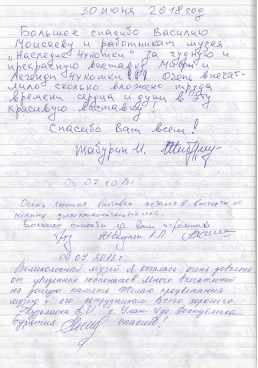 30 июня 2018 год
Большое спасибо Василию
Моисееву и работникам музея
"Наследие Чукотки" за чудную и
прекрасную выставку Мифы и
Легенды Чукотки!!! Очень впечат-
лило сколько вложено труда
времени сердца и души в эту
красивую выставку!
Спасибо Вам всем!
Жабурин И.
Очень
Большое спасибо за ваш
труд
06.07.2018г.
Великолепный музей Я осталась очень довольна
от увиденных экспонатов Много впечатлений
на долгую память Желаю процветания
музею и его сотрудникам Всего хорошего.
г. Улан-Удэ Республика
Бурятия спасибо!